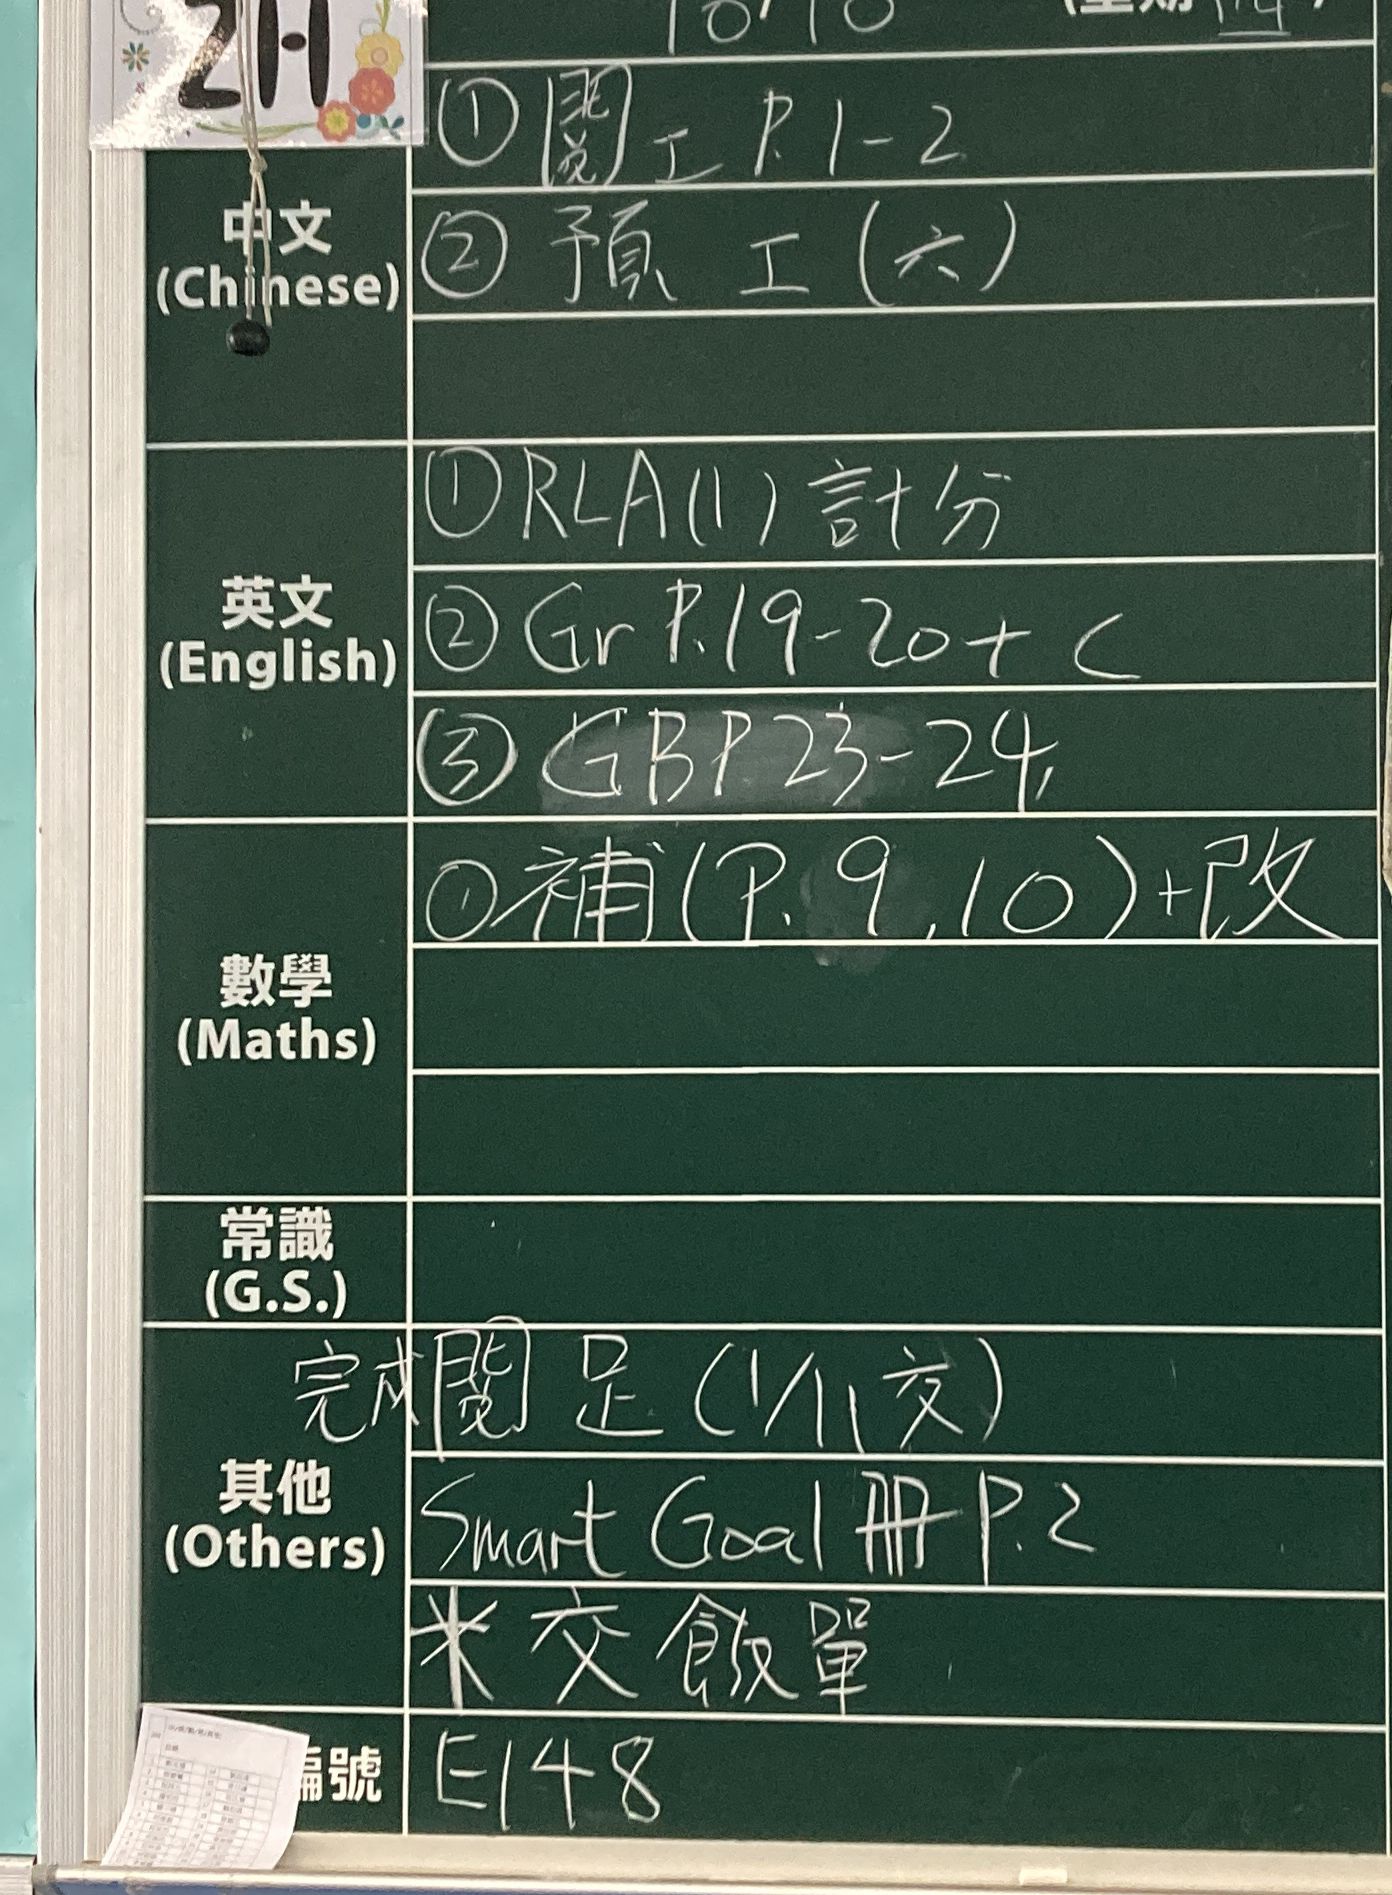 2H
中文
(Chinese)
① 閱工 P.1-2
② 預 工 (六)
英文
(English)
① RLA(1) 計分
② Gr P.19-20 + C
③ GB P23-24,
數學
(Maths)
① 補(P.9,10)+改
常識
(G.S.)
其他
(Others)
完成閱 足 (1/11 交)
Smart Goal 冊 P.2
* 交 飯單
編號
E148